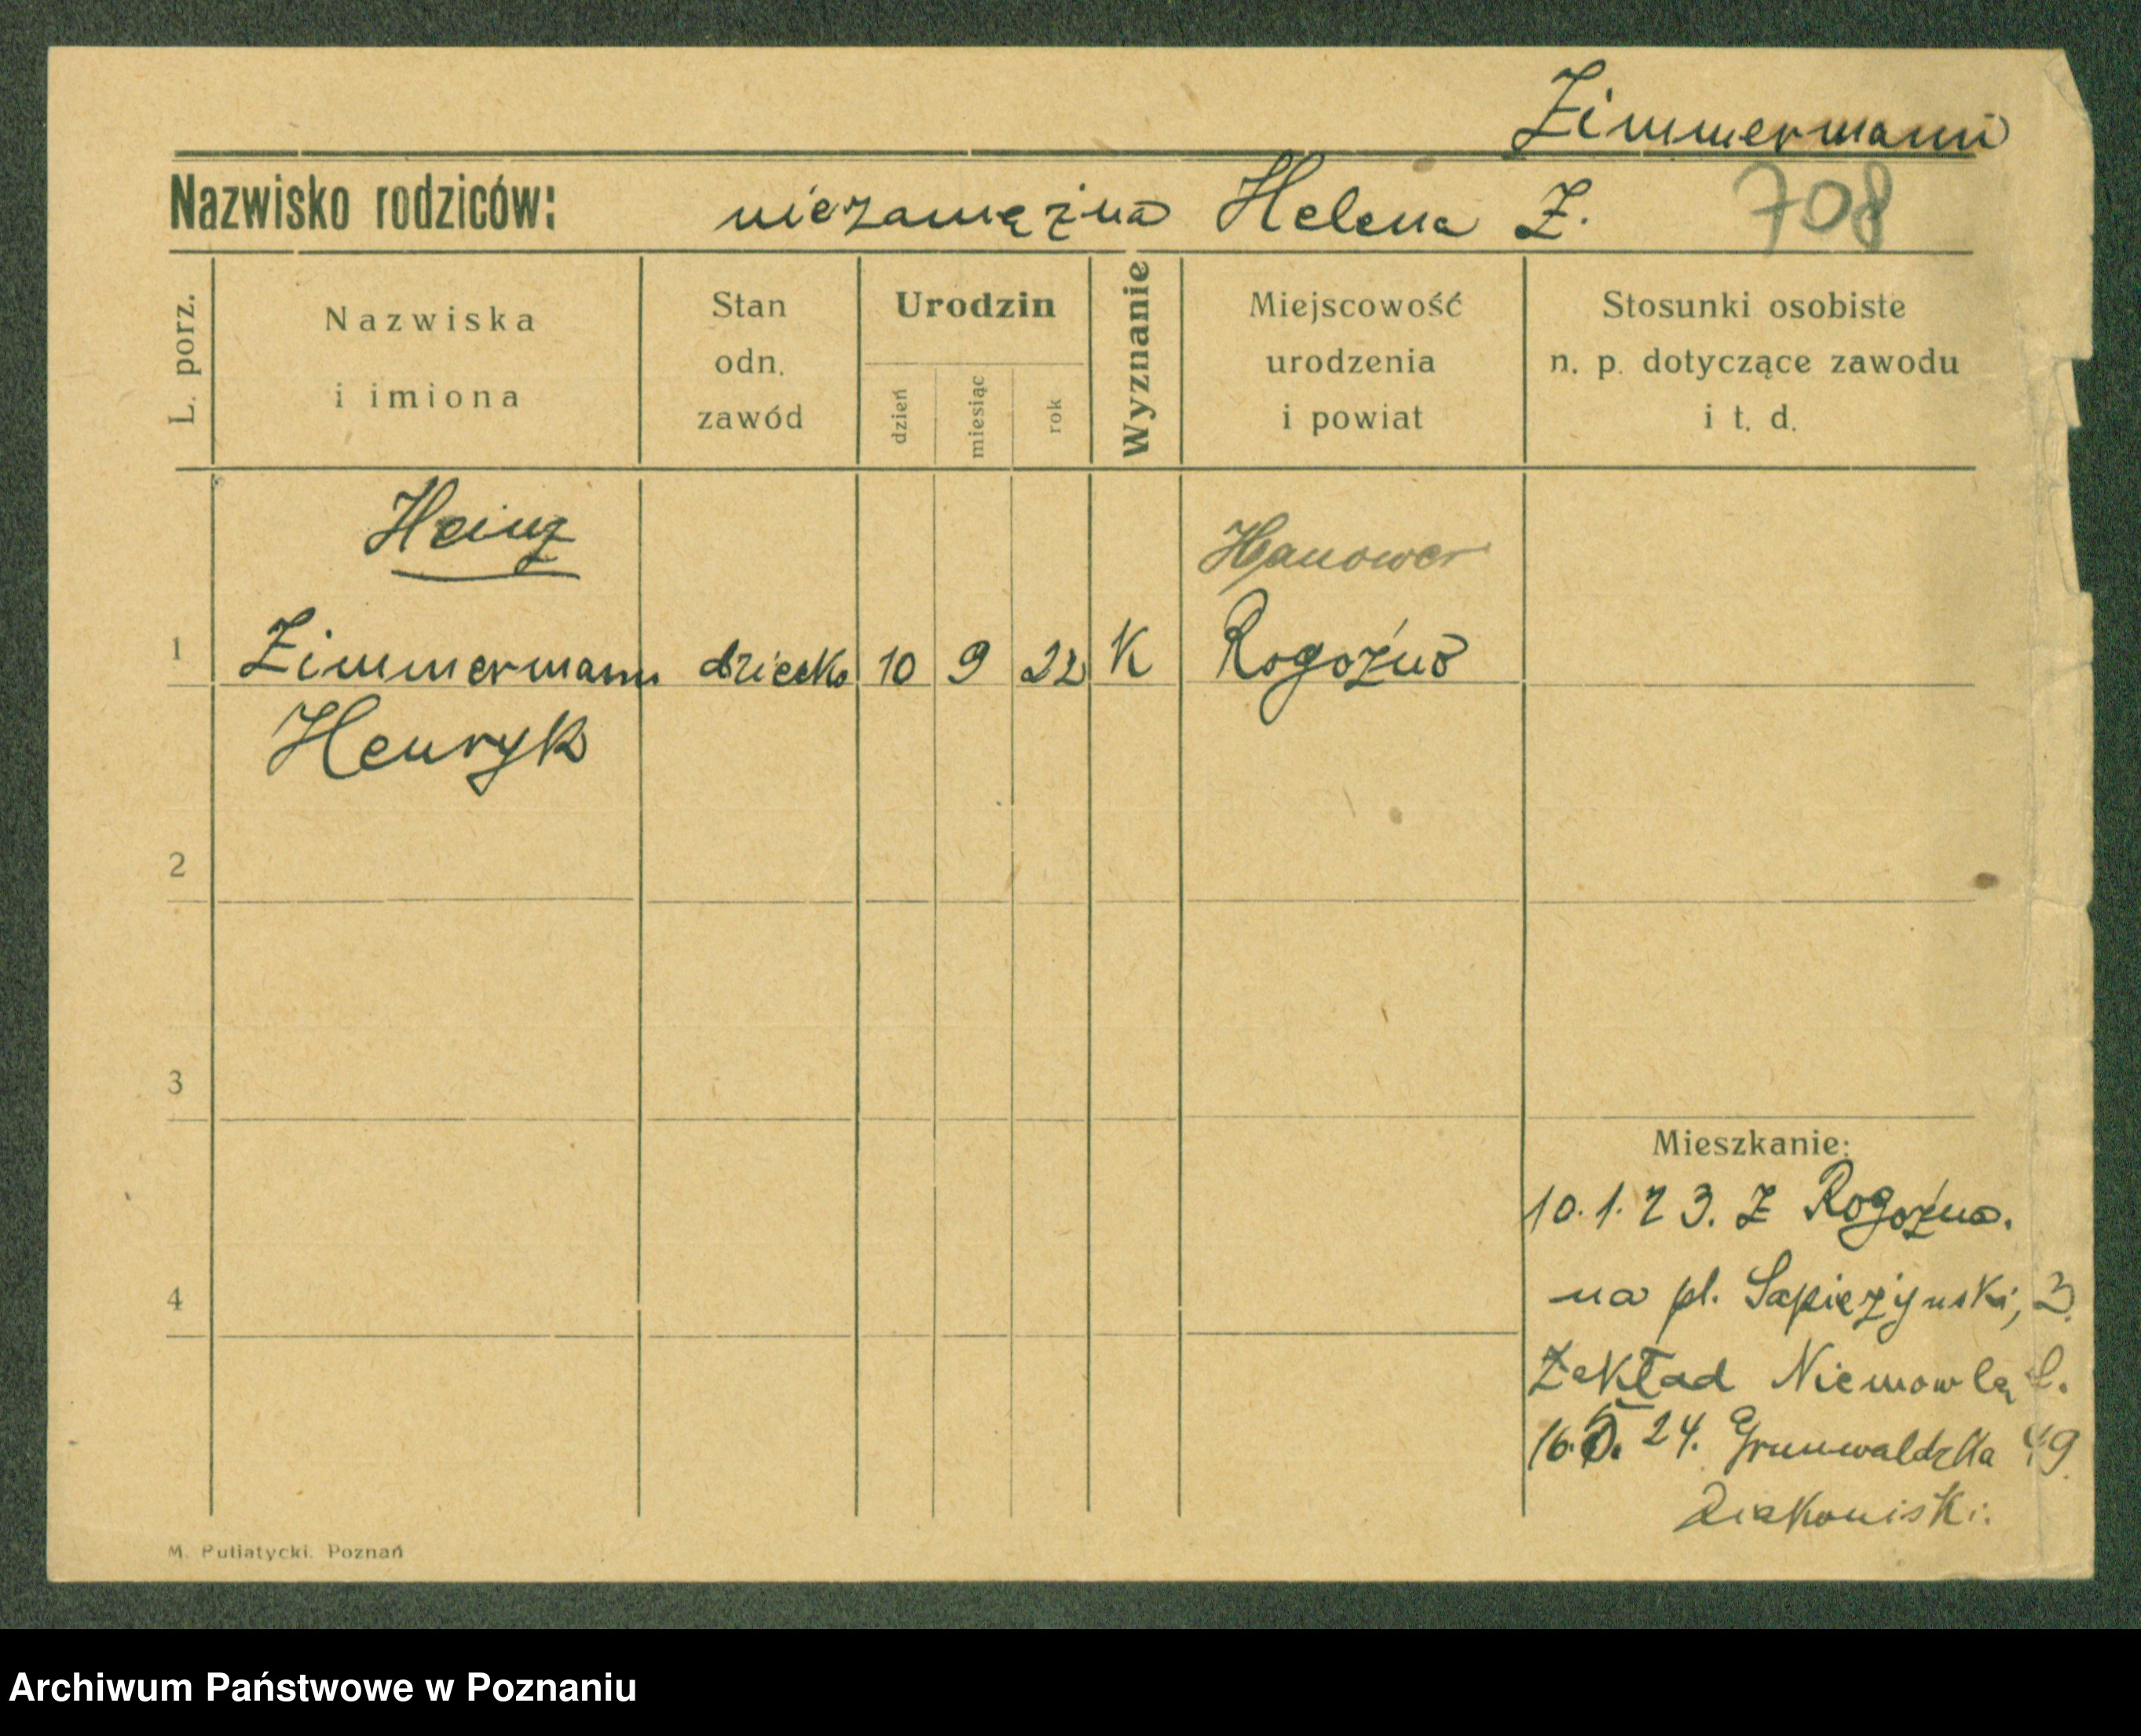 Zimmermann
Nazwisko rodziców: niezamężna Helena Z. 708
L. porz.
Nazwiska
i imiona
Stan
odn.
zawód
Urodzin
dzień
miesiąc
rok
Wyznanie
Miejscowość
urodzenia
i powiat
Stosunki osobiste
n. p. dotyczące zawodu
i t. d.
Heinz
Hanower
1 Zimmermann dziecko 10 9 22 K Rogoźno
Henryk
2
3
Mieszkanie:
10.1.23. z Rogoźna.
4
na pl. Sapieżyński, 3.
Zakład Niemowląt.
16. 24. Grunwaldzka 49
Diakoniski.
M. Putiatycki. Poznań
Archiwum Państwowe w Poznaniu